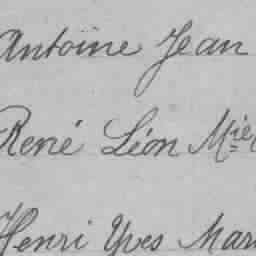 Antoine Jean
René Léon Mie
Henri Yves Mar